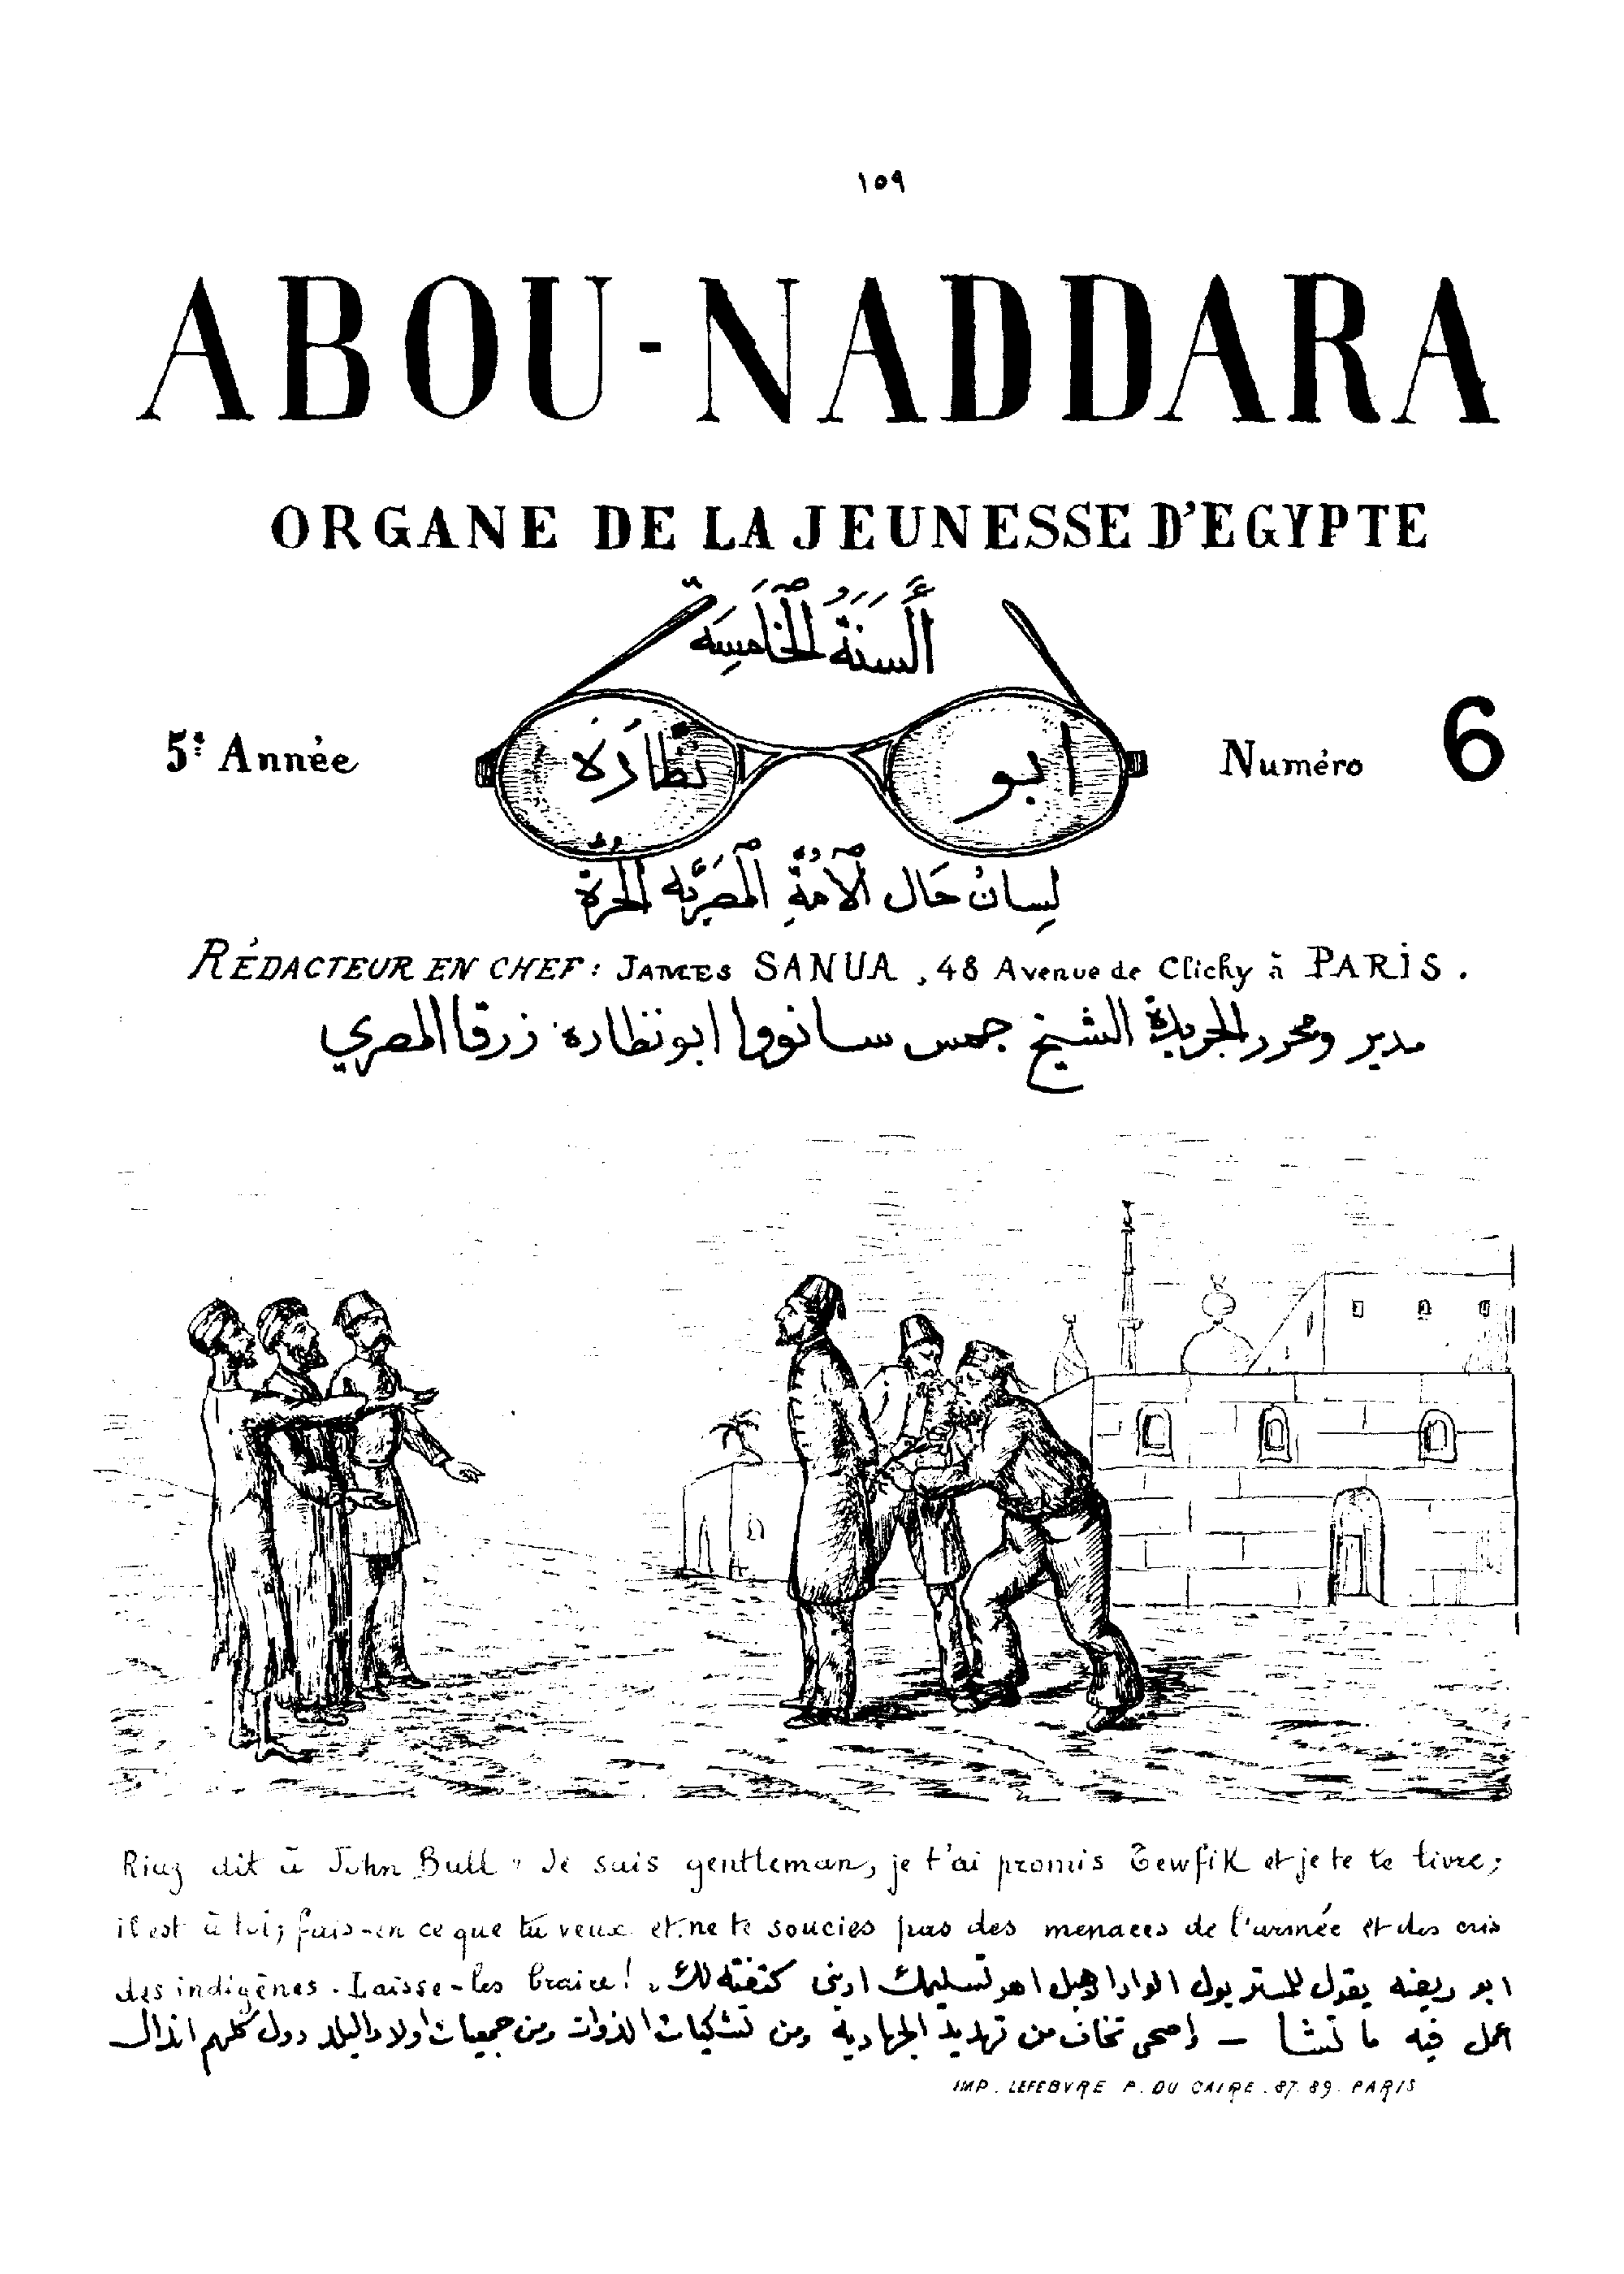 ١٥٩
ABOU-NADDARA
ORGANE DE LA JEUNESSE D'EGYPTE
أَلسَنَةُ الخَامِسَه
5e Année
ابو نظارَه
Numéro 6
لِسانُ حَال الأمةِ المصريَّه الحرة
RÉDACTEUR EN CHEF: JAMES SANUA, 48 Avenue de Clichy à PARIS.
مدير ومحرر الجريدة الشيخ جمس سانووا ابو نظاره زرقا المصري
Riaz dit à John Bull " Je suis gentleman, je t'ai promis Tewfik et je te le livre;
il est à toi; fais-en ce que tu veux et ne te soucies pas des menaces de l'armée et des cris
des indigènes. Laisse-les braire!
ابو ريضه يقول للمستر بول الوادا اهبل اهو تسليمك ادينى كتفته لك
اعمل فيه ما تشا – إصحى تخاف من تهديد الجهاديه ومن تشكيات الذوات ومن جمعيات اولاد البلد دول كلهم انذال
IMP. LEFEBVRE P. DU CAIRE. 87. 89. PARIS